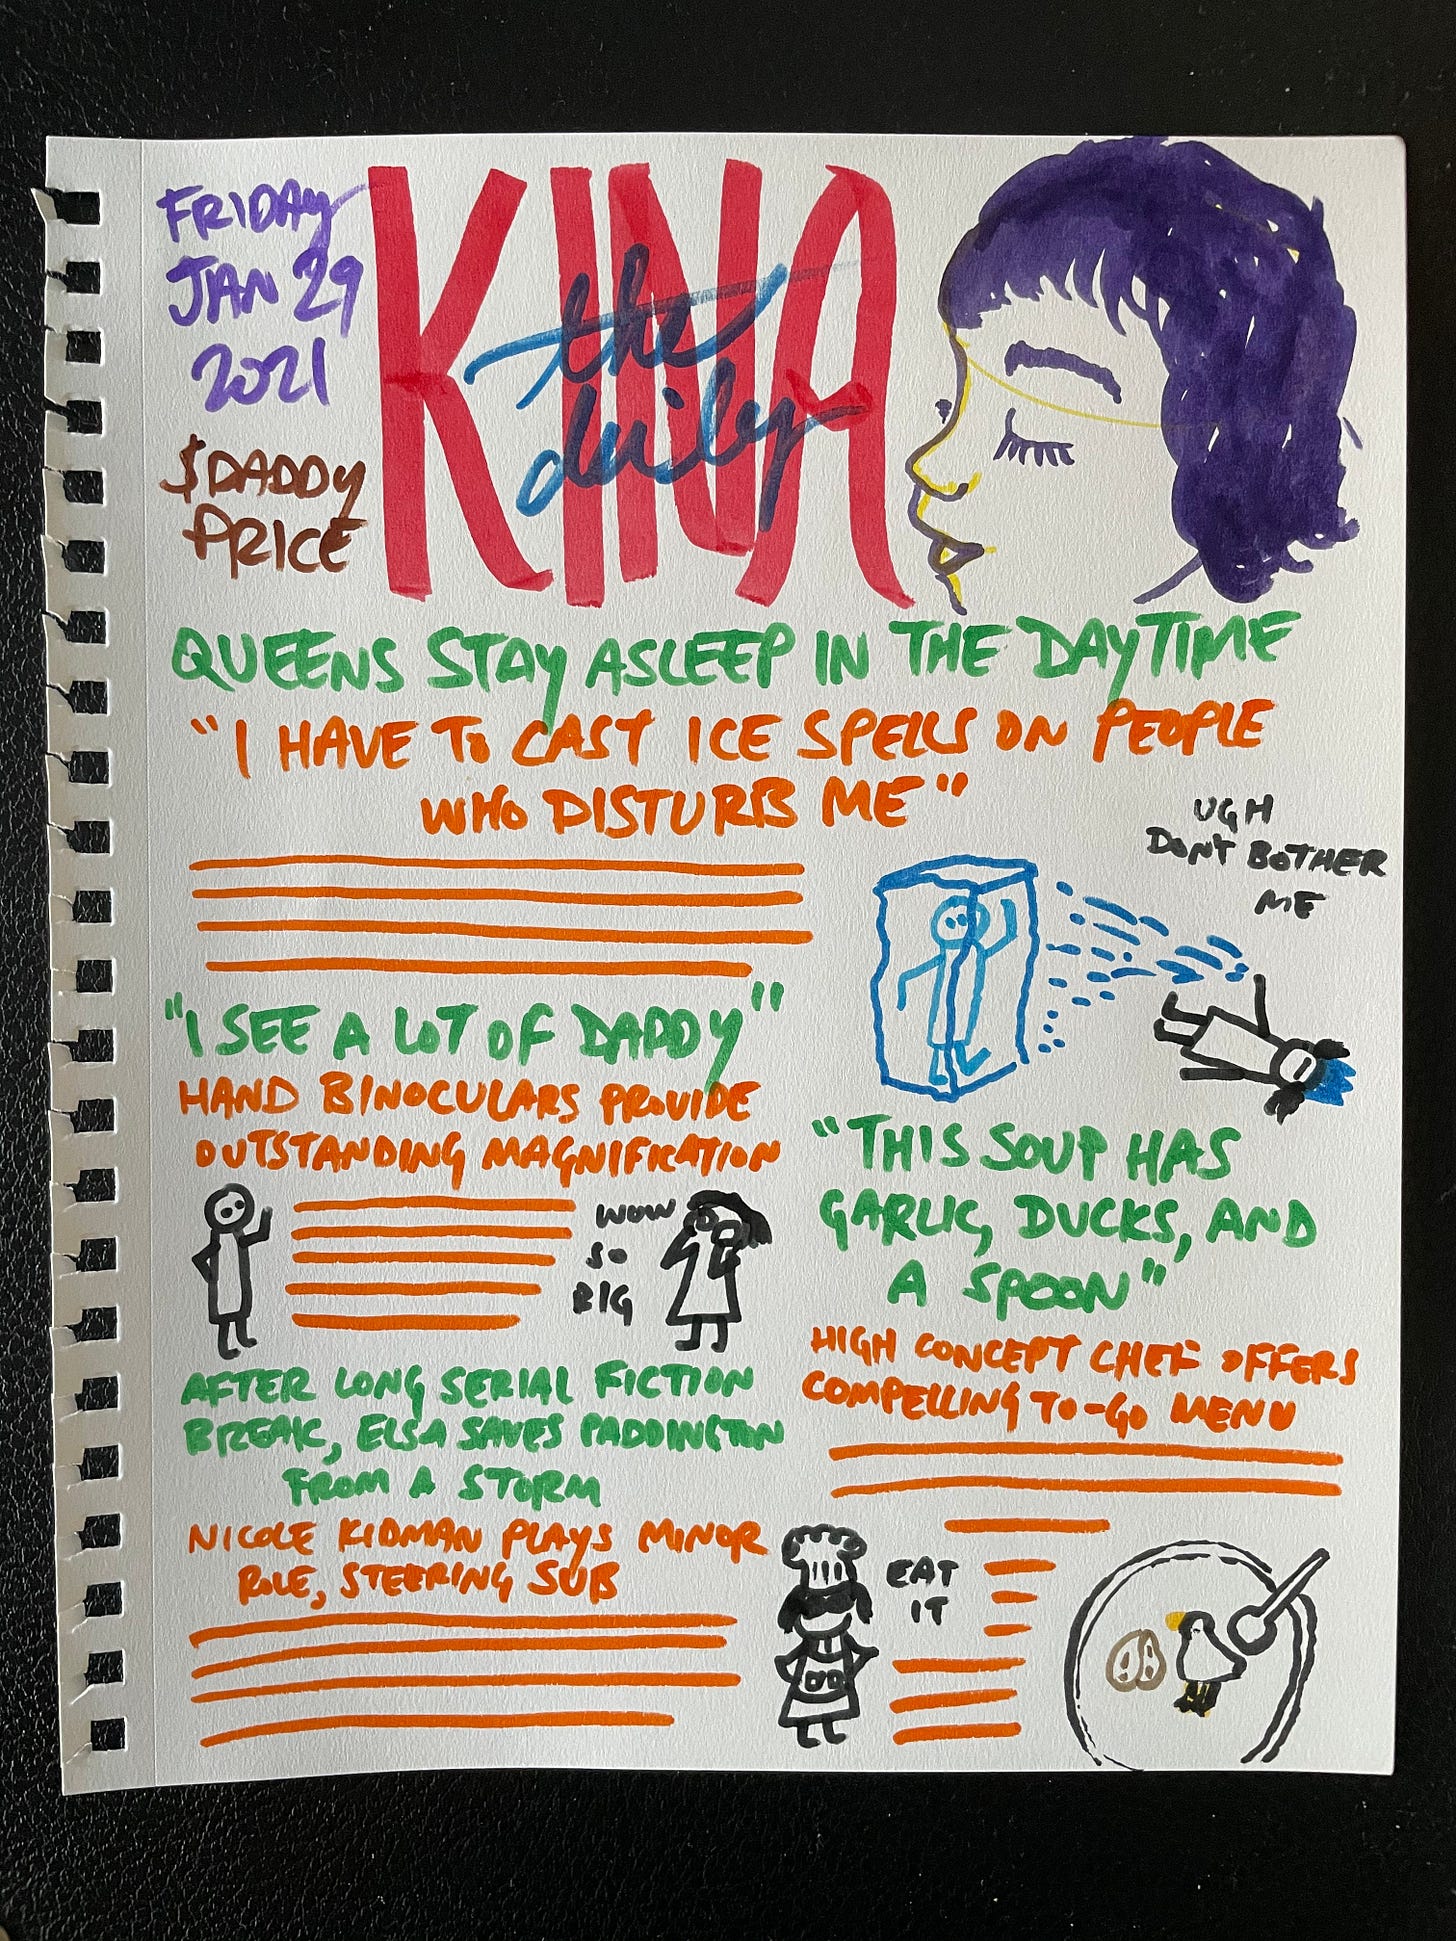 FRIDAY
JAN 29
2021
$DADDY
PRICE
KINA
the
daily
QUEENS STAY ASLEEP IN THE DAYTIME
"I HAVE TO CAST ICE SPELLS ON PEOPLE
WHO DISTURB ME"
UGH
DON'T BOTHER
ME
"I SEE A LOT OF DADDY"
HAND BINOCULARS PROVIDE
OUTSTANDING MAGNIFICATION
WOW
SO
BIG
"THIS SOUP HAS
GARLIC, DUCKS, AND
A SPOON"
HIGH CONCEPT CHEF OFFERS
COMPELLING TO-GO MENU
AFTER LONG SERIAL FICTION
BREAK, ELSA SAVES PADDINGTON
FROM A STORM
NICOLE KIDMAN PLAYS MINOR
ROLE, STEERING SUB
EAT
IT